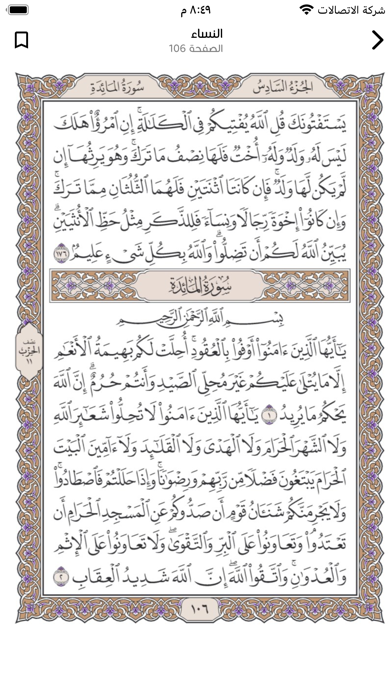 شركة الاتصالات ٨:٤٩ م
النساء
الصفحة 106
الجُزْءُ السَّادِسُ سُورَةُ المَائِدَةِ
يَسْتَفْتُونَكَ قُلِ ٱللَّهُ يُفْتِيكُمْ فِي ٱلْكَلَٰلَةِ ۚ إِنِ ٱمْرُؤٌا۟ هَلَكَ
لَيْسَ لَهُۥ وَلَدٌ وَلَهُۥٓ أُخْتٌ فَلَهَا نِصْفُ مَا تَرَكَ ۚ وَهُوَ يَرِثُهَآ إِن
لَّمْ يَكُن لَّهَا وَلَدٌ ۚ فَإِن كَانَتَا ٱثْنَتَيْنِ فَلَهُمَا ٱلثُّلُثَانِ مِمَّا تَرَكَ ۚ
وَإِن كَانُوٓا۟ إِخْوَةً رِّجَالًا وَنِسَآءً فَلِلذَّكَرِ مِثْلُ حَظِّ ٱلْأُنثَيَيْنِ ۗ
يُبَيِّنُ ٱللَّهُ لَكُمْ أَن تَضِلُّوا۟ ۗ وَٱللَّهُ بِكُلِّ شَىْءٍ عَلِيمٌۢ ١٧٦
سُورَةُ المَائِدَةِ
بِسْمِ ٱللَّهِ ٱلرَّحْمَٰنِ ٱلرَّحِيمِ
يَٰٓأَيُّهَا ٱلَّذِينَ ءَامَنُوٓا۟ أَوْفُوا۟ بِٱلْعُقُودِ ۚ أُحِلَّتْ لَكُم بَهِيمَةُ ٱلْأَنْعَٰمِ
إِلَّا مَا يُتْلَىٰ عَلَيْكُمْ غَيْرَ مُحِلِّى ٱلصَّيْدِ وَأَنتُمْ حُرُمٌ ۗ إِنَّ ٱللَّهَ
يَحْكُمُ مَا يُرِيدُ ١ يَٰٓأَيُّهَا ٱلَّذِينَ ءَامَنُوا۟ لَا تُحِلُّوا۟ شَعَٰٓئِرَ ٱللَّهِ
وَلَا ٱلشَّهْرَ ٱلْحَرَامَ وَلَا ٱلْهَدْىَ وَلَا ٱلْقَلَٰٓئِدَ وَلَآ ءَآمِّينَ ٱلْبَيْتَ
ٱلْحَرَامَ يَبْتَغُونَ فَضْلًا مِّن رَّبِّهِمْ وَرِضْوَٰنًا ۚ وَإِذَا حَلَلْتُمْ فَٱصْطَادُوا۟ ۚ
وَلَا يَجْرِمَنَّكُمْ شَنَـَٔانُ قَوْمٍ أَن صَدُّوكُمْ عَنِ ٱلْمَسْجِدِ ٱلْحَرَامِ أَن
تَعْتَدُوا۟ ۘ وَتَعَاوَنُوا۟ عَلَى ٱلْبِرِّ وَٱلتَّقْوَىٰ ۖ وَلَا تَعَاوَنُوا۟ عَلَى ٱلْإِثْمِ
وَٱلْعُدْوَٰنِ ۚ وَٱتَّقُوا۟ ٱللَّهَ ۖ إِنَّ ٱللَّهَ شَدِيدُ ٱلْعِقَابِ ٢
نصف
الحزب
١١
١٠٦